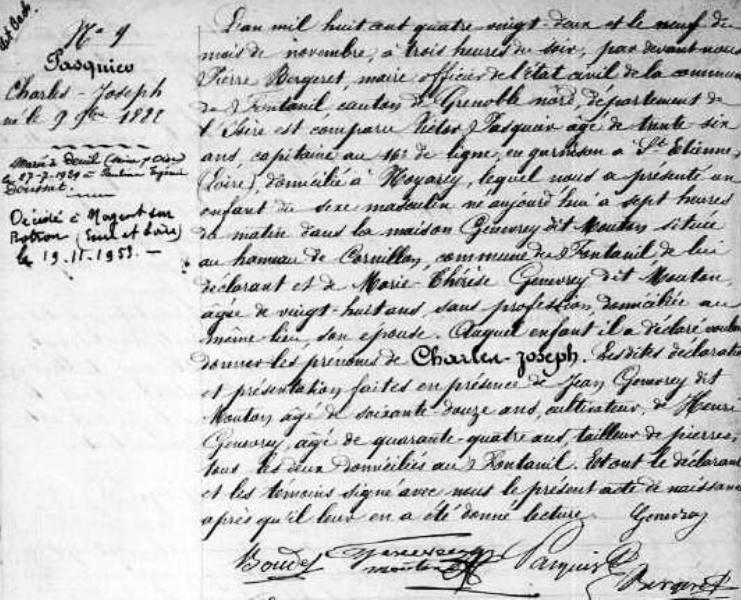 N° 9
Pasquier
Charles-Joseph
né le 9 9bre 1882
Marié à Deuil (Seine & Oise)
le 27-7-1929 à
Décédé à Nogent sur
(Eure et Loire)
le 19.11.1953. —
L'an mil huit cent quatre vingt-deux et le neuf du
mois de novembre, à trois heures du soir, par devant nous
Pierre Bergeret, maire officier de l'état civil de la commune
de Fontanil canton de Grenoble nord, département de
l'Isère est comparu Victor Pasquier âgé de trente-six
ans, capitaine au 16e de ligne, en garnison à St Etienne,
(Loire), domicilié à Noyarey, lequel nous a présenté un
enfant du sexe masculin né aujourd'hui à sept heures
du matin dans la maison Genevrey dit Mouton située
au hameau de Cornillon, commune du Fontanil, de lui
déclarant et de Marie-Thérèse Genevrey dit Mouton,
âgée de vingt-huit ans, sans profession, domiciliée au
même lieu, son épouse. Auquel enfant il a déclaré vouloir
donner les prénoms de Charles-Joseph. Les dites déclaration
et présentation faites en présence de Jean Genevrey dit
Mouton âgé de soixante-douze ans, cultivateur, de Henri
Genevrey, âgé de quarante-quatre ans, tailleur de pierres,
tous les deux domiciliés au Fontanil. Et ont le déclarant
et les témoins signé avec nous le présent acte de naissance
après qu'il leur en a été donné lecture. Genevrey
Genevrey Pasquier
mouton Bergeret